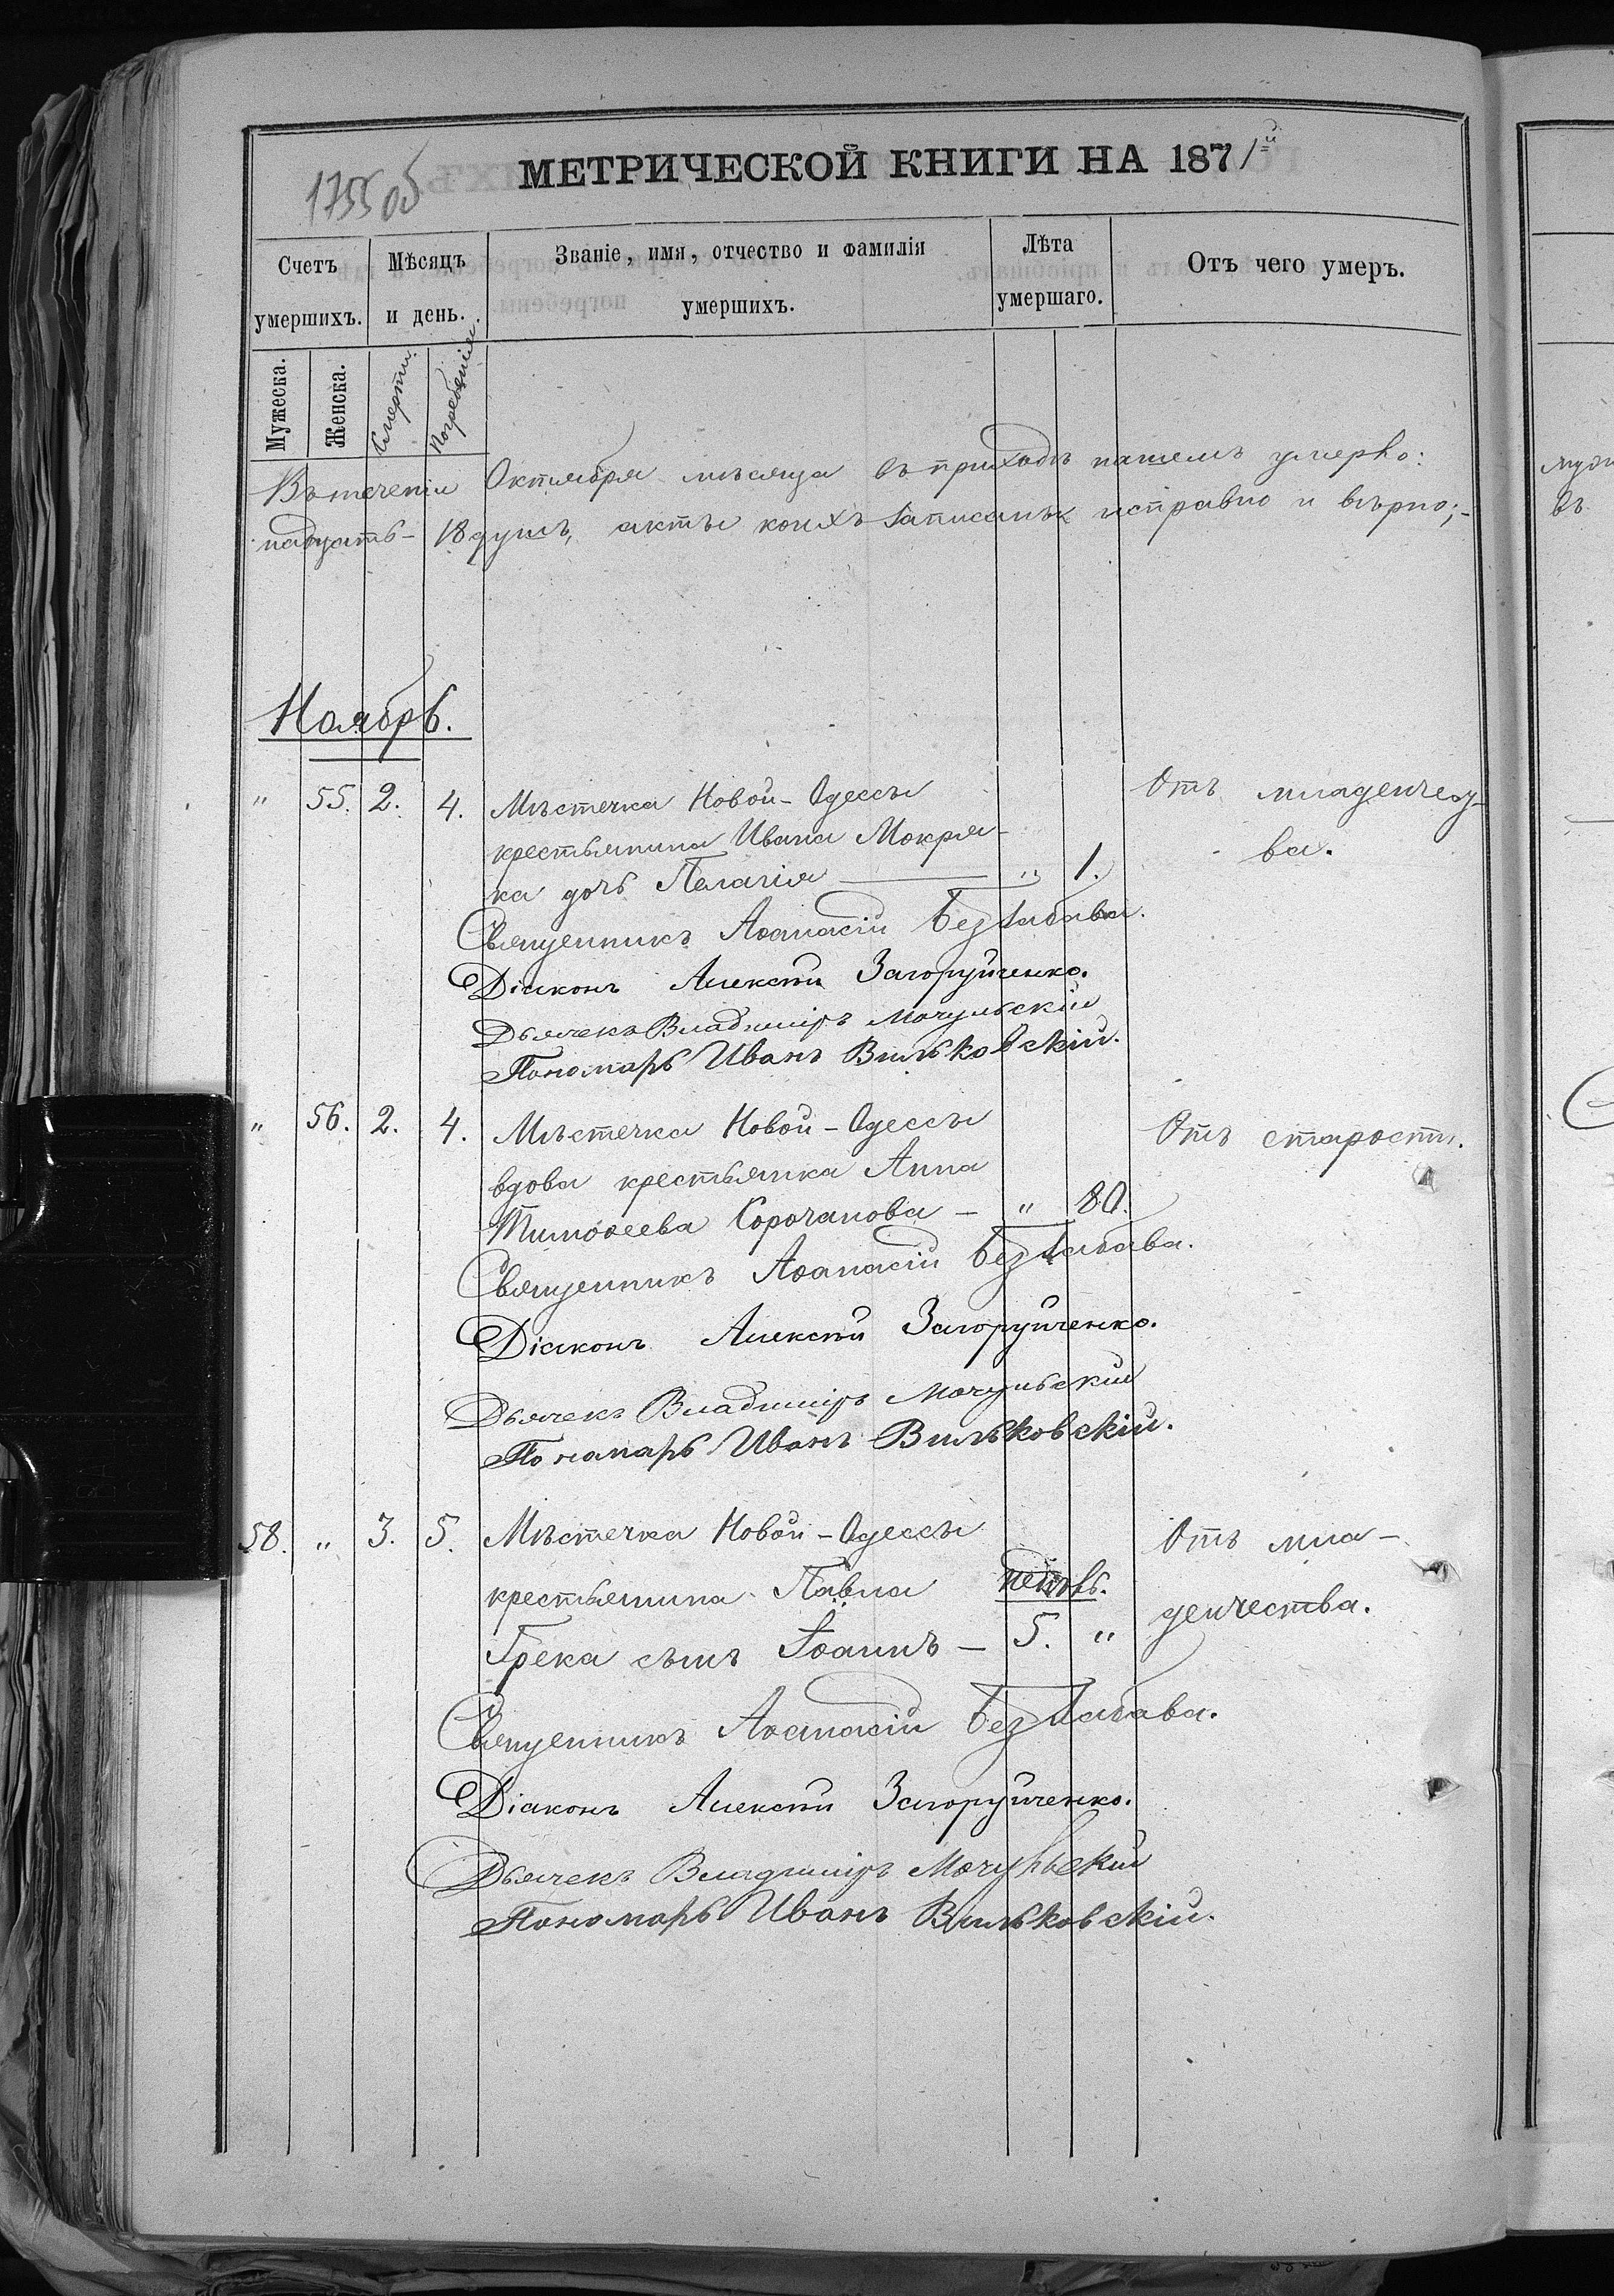 1755 об
МЕТРИЧЕСКОЙ КНИГИ НА 1871й
Счетъ умершихъ.
Мѣсяцъ и день.
Званіе, имя, отчество и фамилія умершихъ.
Лѣта умершаго.
Отъ чего умеръ.
Мужеска.
Женска.
Смерти.
Погребенія.
Въ теченіи Октября мѣсяца въ приходѣ нашемъ умерло:
18 душъ, акты коихъ записаны исправно и вѣрно;-
Ноябрь.
" 55. 2. 4. Мѣстечка Новой-Одессы Отъ младенчест-
крестьянина Ивана Мокря- ва.
ка дочь Пелагія — " 1.
Священникъ Аѳанасій Беззабава.
Діаконъ Алексѣй Загоруйченко.
Дьячекъ Владиміръ Мочульскій
Пономарь Иванъ Вильковскій.
" 56. 2. 4. Мѣстечка Новой-Одессы Отъ старости.
вдова крестьянка Анна
Тимоѳеева Сорочанова — " 80.
Священникъ Аѳанасій Беззабава.
Діаконъ Алексѣй Загоруйченко.
Дьячекъ Владиміръ Мочульскій
Пономарь Иванъ Вильковскій.
58. " 3. 5. Мѣстечка Новой-Одессы Отъ мла-
крестьянина Павла денчества.
Грека сынъ Іоаннъ — 5. "
Священникъ Аѳанасій Беззабава.
Діаконъ Алексѣй Загоруйченко.
Дьячекъ Владиміръ Мочульскій
Пономарь Иванъ Вильковскій.